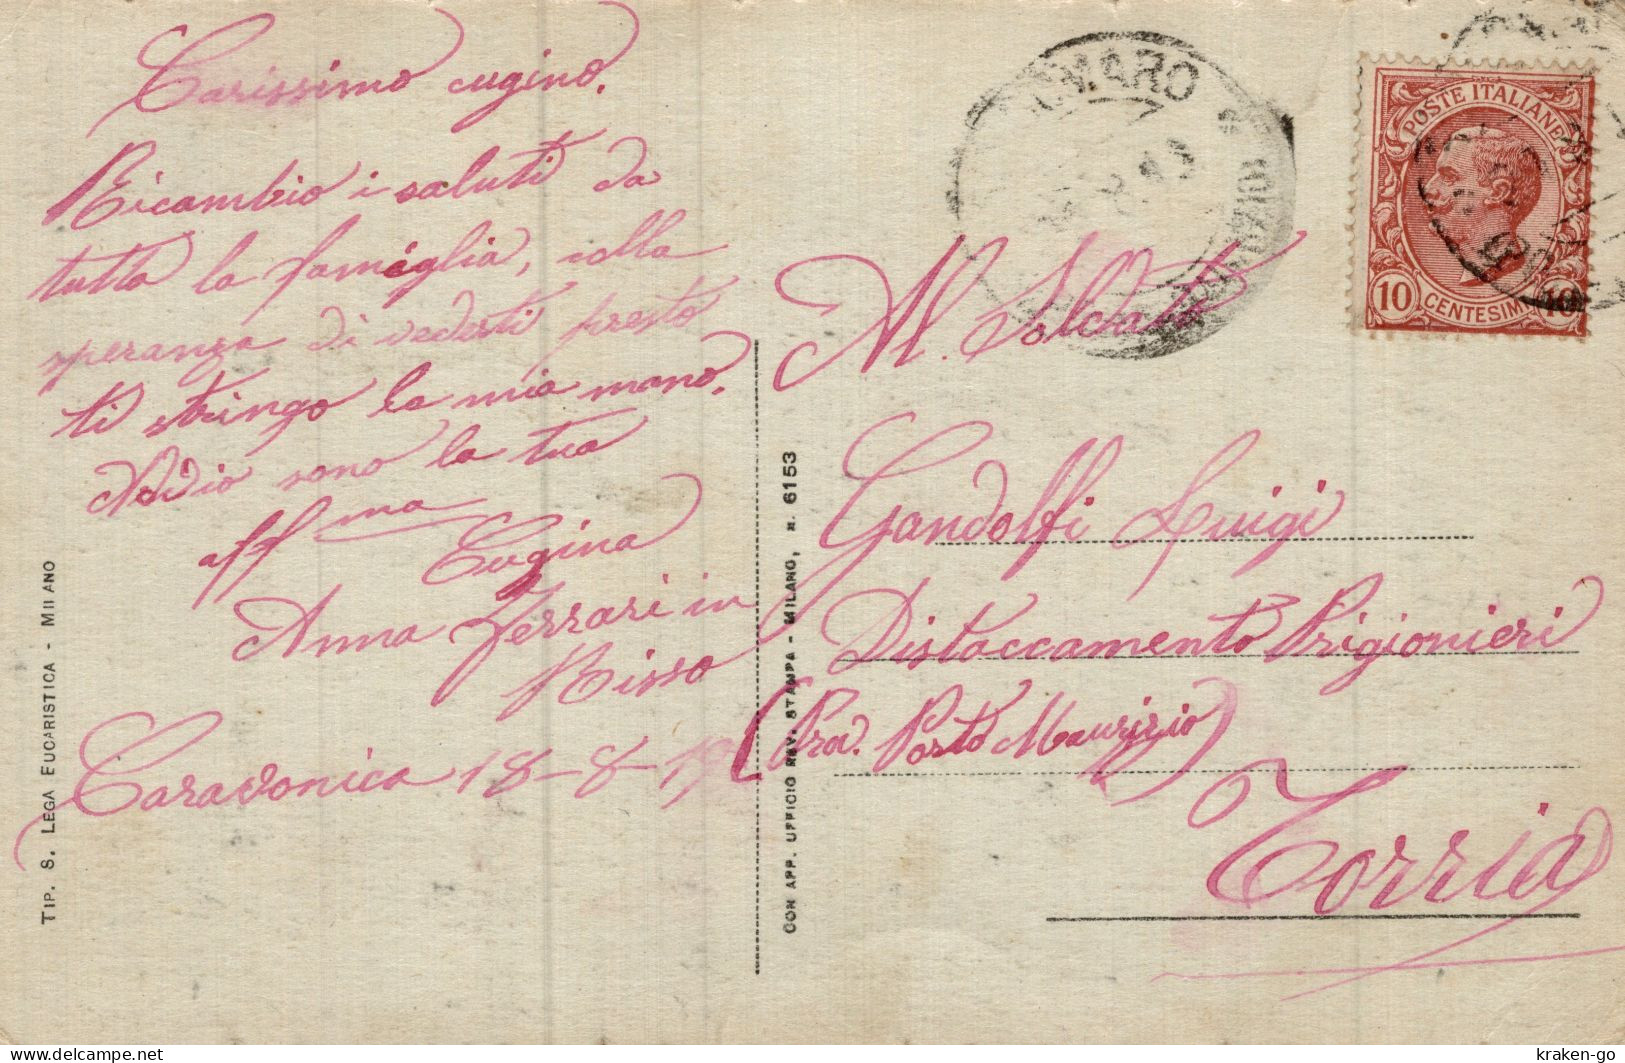 Carissimo cugino.
Ricambio i saluti da
tutta la famiglia, colla
speranza di vederti presto
ti stringo la mia mano.
Addio sono la tua
aff.ma
Cugina
Anna Ferrari in
Risso
Caravonica 18-8-19
TIP. S. LEGA EUCARISTICA - MILANO
CON APP. UFFICIO REV. STAMPA - MILANO, N. 6153
MARO
POSTE ITALIANE
10 CENTESIMI 10
Al Soldato
Gandolfi Luigi
Distaccamento Prigionieri
(Prov. Porto Maurizio)
Torria
kraken-go